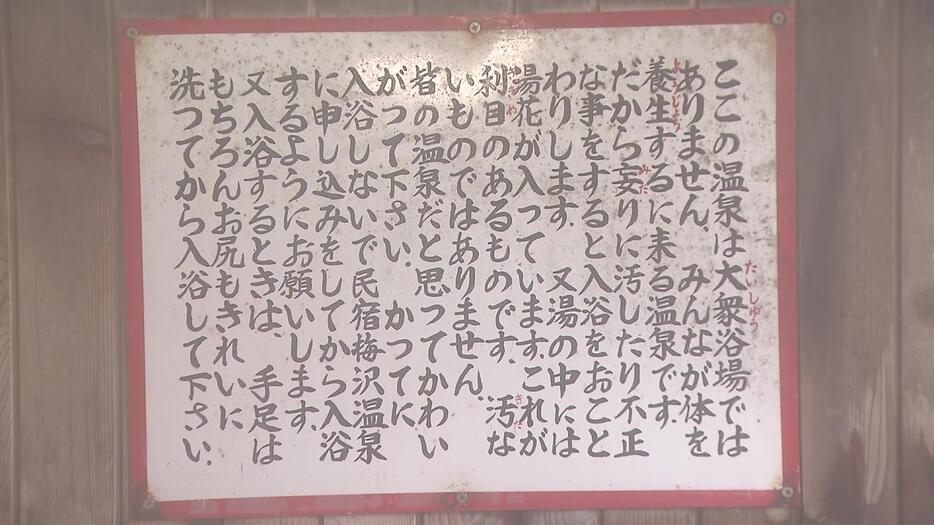 たいしゅう
ここの温泉は大衆浴場では
ありません。みんなが体を
ようじょう
養生するに来る温泉です。
みだ
だから妄りに汚したり不正
な事をすると入浴をおこと
わりします。又湯の中には
湯花が入っています。これが
きた
利目のあるものです。汚な
いものではありません。
皆の温泉だと思ってかわい
がつて下さい。かつてに
入浴しないで民宿梅沢温泉
に申し込みをしてから入浴
するようにお願いします。
又入浴するときは、手足は
もちろんお尻もきれいに
洗つてから入浴して下さい。